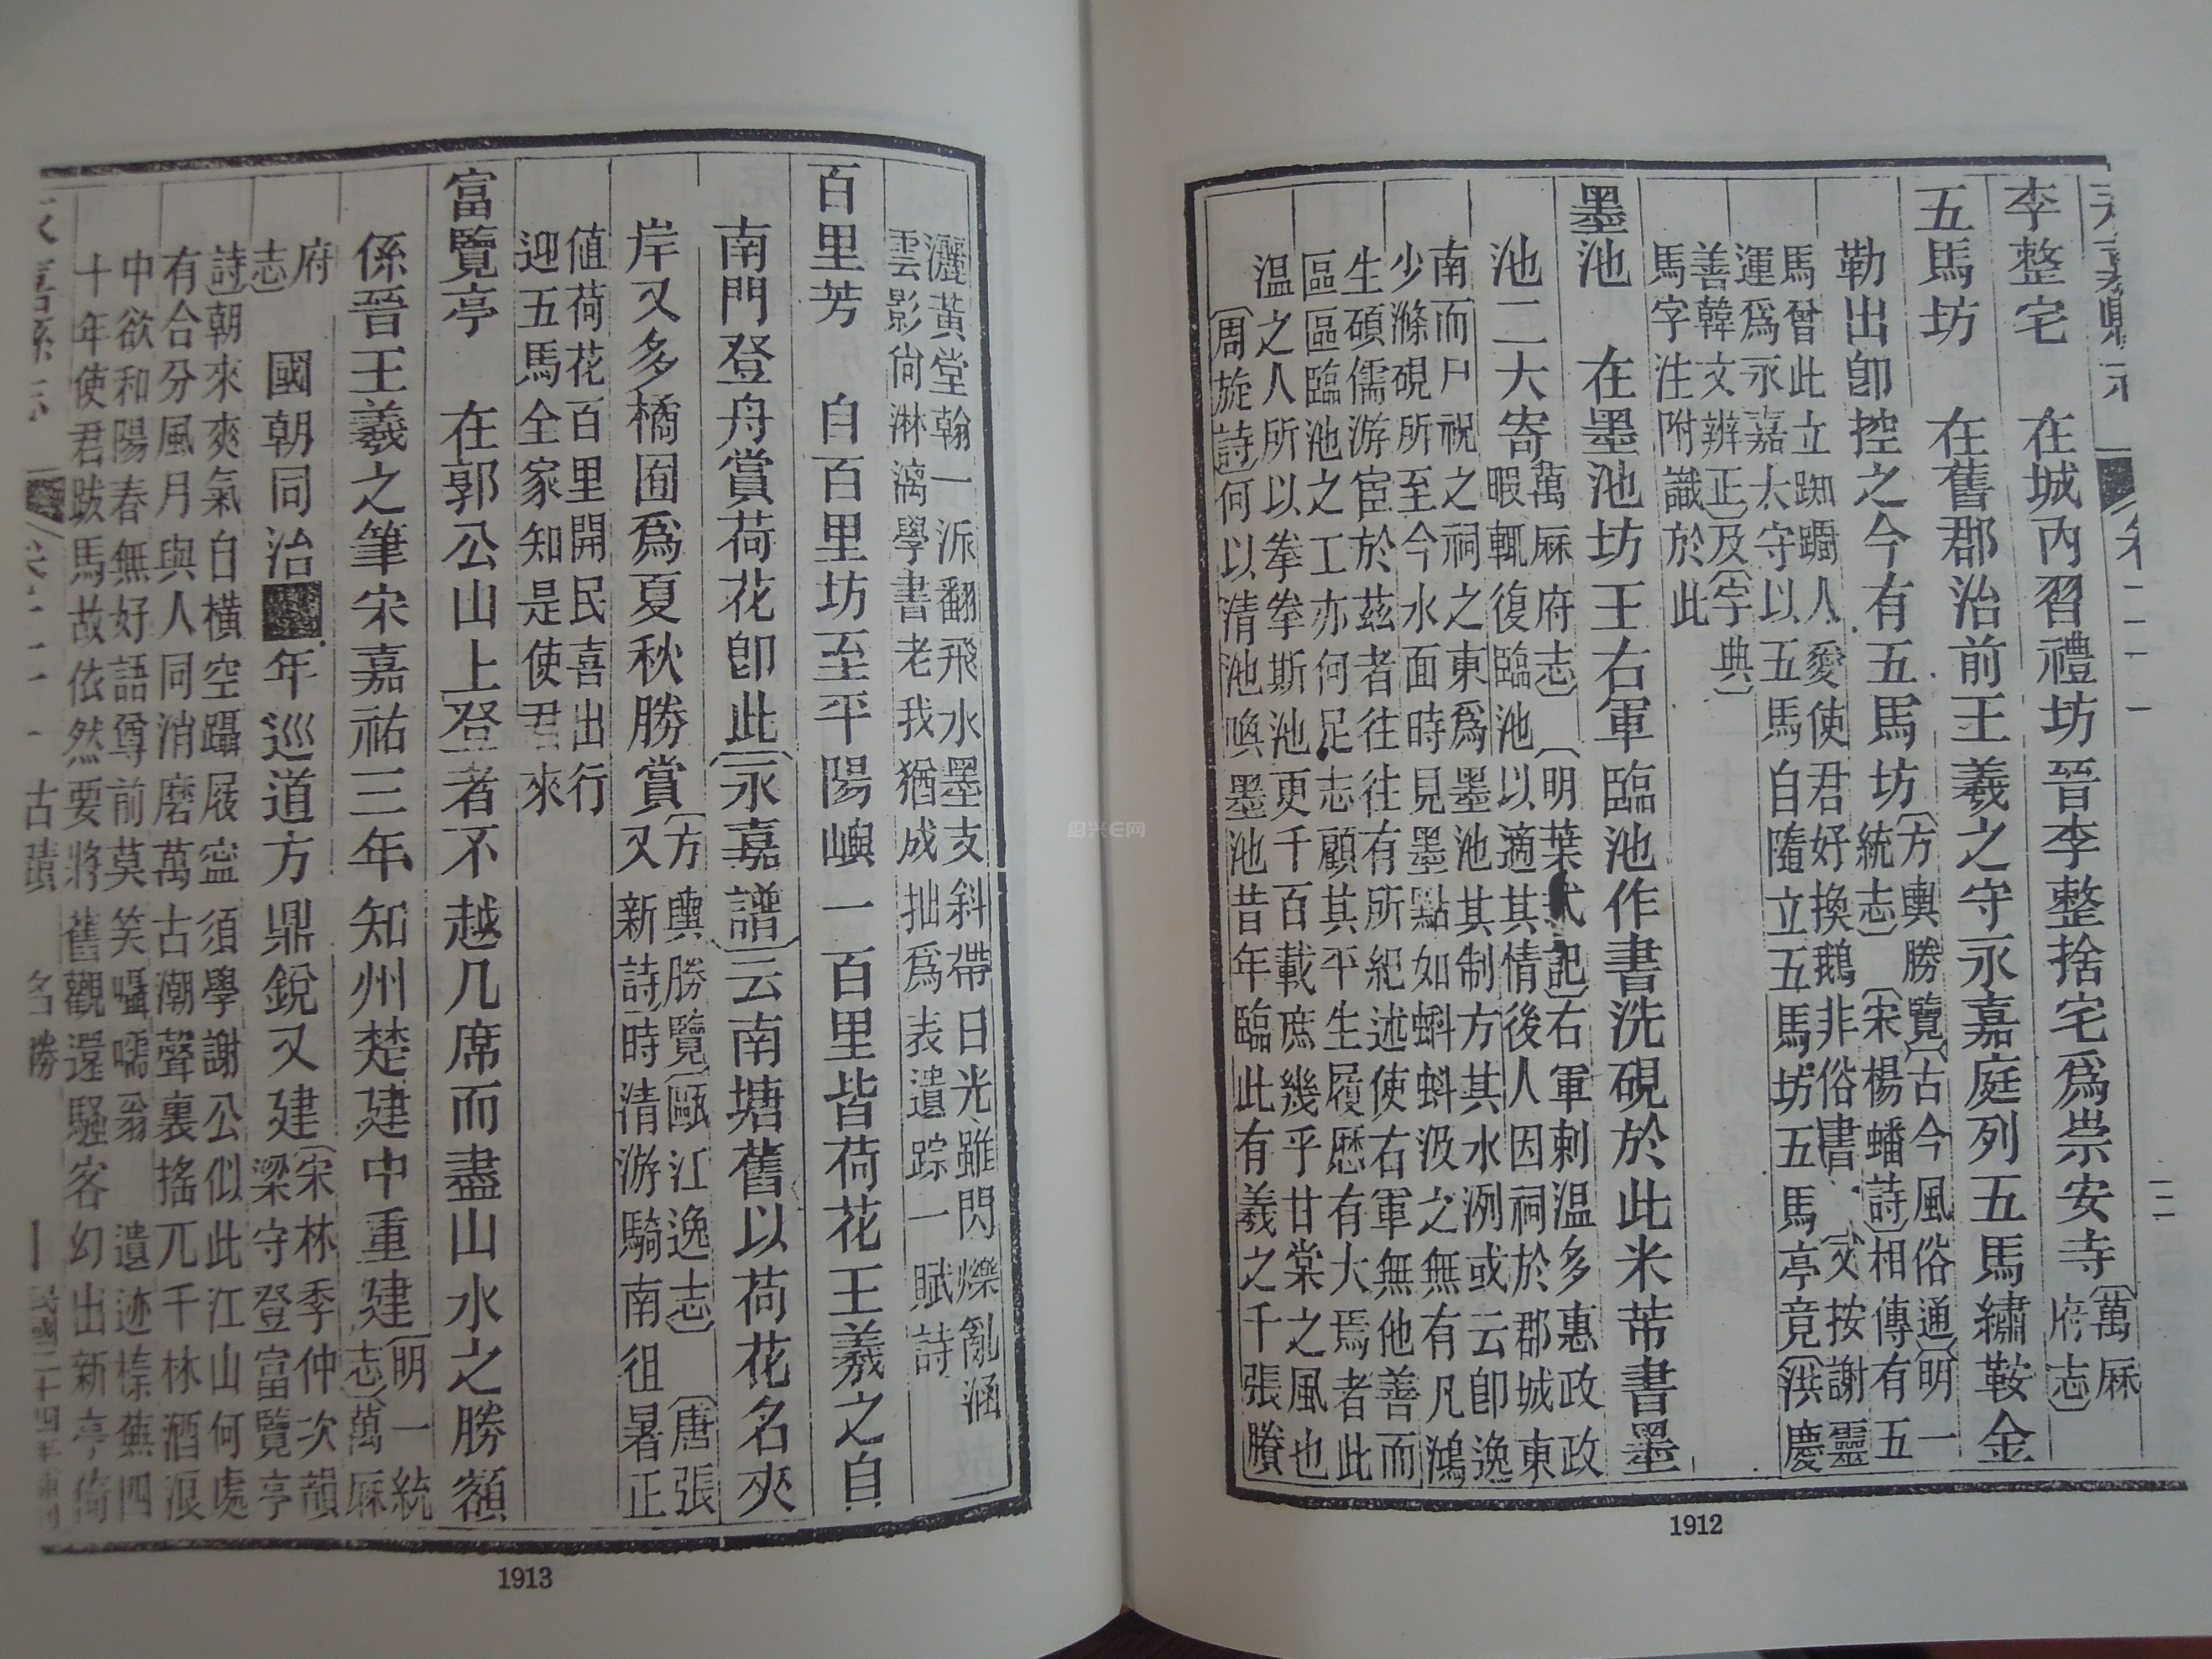 李整宅　在城內習禮坊晉李整捨宅爲崇安寺〔萬厤
府志〕
五馬坊　在舊郡治前王羲之守永嘉庭列五馬繡鞍金
勒出卽控之今有五馬坊〔方輿勝覽〕〔古今風俗通〕〔明一
統志〕〔宋楊蟠詩〕相傳有五
馬曾此立踟躕人愛使君好換鵝非俗書　〔文按謝靈
運爲永嘉太守以五馬自隨立五馬坊五馬亭竟〔洪慶
善韓文辨正〕及〔字典〕
馬字注附識於此
墨池　在墨池坊王右軍臨池作書洗硯於此米芾書墨
池二大寄　萬厤府志〕　〔明葉式記〕右軍刺溫多惠政政
暇輒復臨池以適其情後人因祠於郡城東
南而尸祝之祠之東爲墨池其制方其水洌或云卽逸
少滌硯所至今水面時見墨點如蝌蚪汲之無有凡鴻
生碩儒游宦於茲者往往有所紀述使右軍無他善而
區區臨池之工亦何足志顧其平生履厯有大焉者此
溫之人所以拳拳斯池更千百載庶幾乎甘棠之風也
〔周旋詩〕何以清池喚墨池昔年臨此有羲之千張賸
1912
灑黃堂翰一派翻飛水墨支斜帶日光雖閃爍亂涵
雲影尙淋漓學書老我猶成拙爲表遺踪一賦詩
百里芳　自百里坊至平陽嶼一百里皆荷花王羲之自
南門登舟賞荷花卽此〔永嘉譜〕云南塘舊以荷花名夾
岸又多橘囿爲夏秋勝賞〔方輿勝覽〕〔甌江逸志〕　〔唐張
又新詩〕時清游騎南徂暑正
値荷花百里開民喜出行
迎五馬全家知是使君來
富覽亭　在郭公山上登者不越几席而盡山水之勝額
係晉王羲之筆宋嘉祐三年知州楚建中重建〔明一統
志〕〔萬厤
府
志〕　國朝同治年巡道方鼎銳又建〔宋林季仲次韻
梁守登富覽亭
詩〕朝來爽氣白橫空躡屐寍須學謝公似此江山何處
有合分風月與人同消磨萬古潮聲裏搖兀千林酒浪
中欲和陽春無好語尊前莫笑囁嚅翁　遺迹榛蕪四
十年使君跋馬故依然要將舊觀還騷客幻出新亭倚
古蹟　名勝
1913
绍兴E网